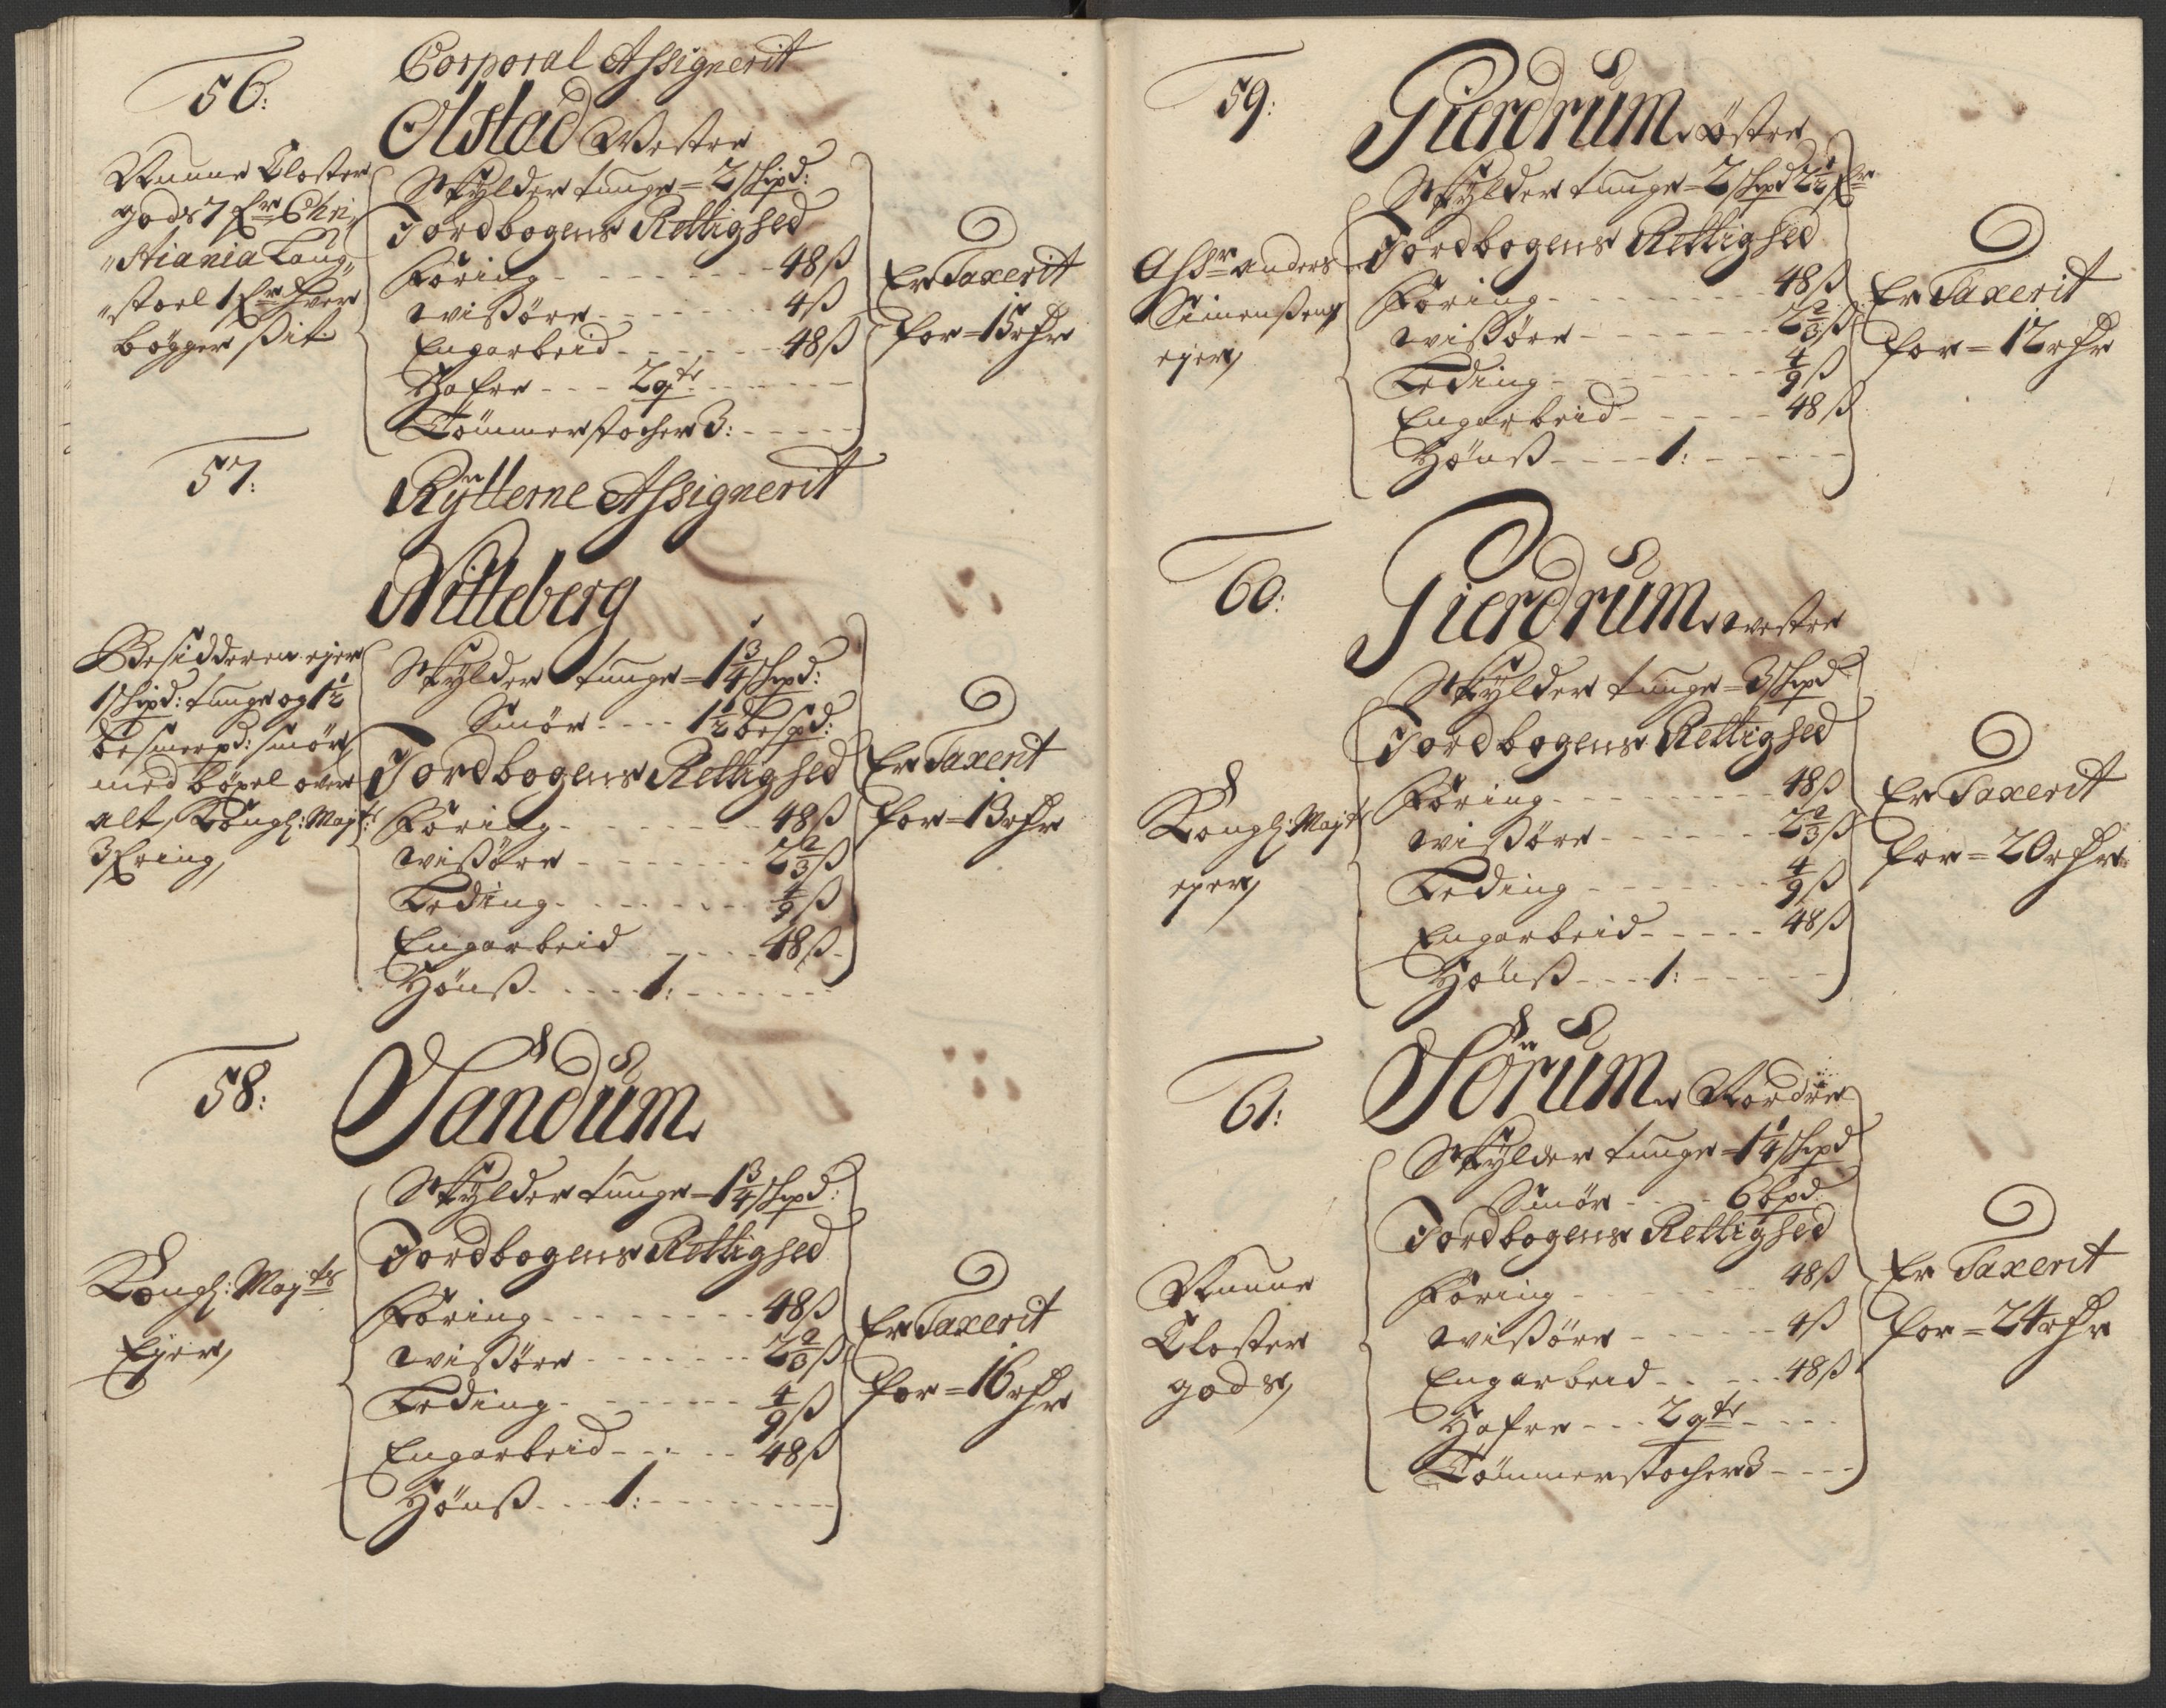 56:
Corporal Assignerit
Olstad Westre
Nunne Closter
gods 7 Fr Chri„
„stiania Laug„
„stoel 1 Fr hver
bögger sit
Skylder tunge = 2 schpd:
Jordbogens Rettighed
Föring - - - - 48 ß
wißöre - - - - 4 ß
Engarbeid - - - - 48 ß
Hafre - - - 2 qtr - - -
Tömmerstocher 3: - - - -
Er Taxerit
for = 15 rdr
57:
Rytterne Assignerit
Nitteberg
Besidderen ejer
1 schpd: tunge og 1 1/2
besmerpd: smör,
med böxel over
alt, Kongl: Mayt:
3 Fring,
Skylder tunge = 1 3/4 schpd:
Smör - - - - 1 1/2 bespd:
Jordbogens Rettighed
Föring - - - - 48 ß
wißöre - - - - 2 2/3 ß
Leding - - - - 4/9 ß
Engarbeid - - - - 48 ß
Hönß - - - - 1: - - - -
Er Taxerit
for = 13 rdr
58:
Sandum
Kongl: Mayts
Ejer,
Skylder tunge = 1 3/4 schpd:
Jordbogens Rettighed
Föring - - - - 48 ß
wißöre - - - - 2 2/3 ß
Leding - - - - 4/9 ß
Engarbeid - - - - 48 ß
Hönß - - - 1: - - - -
Er Taxerit
for = 16 rdr
59:
Gierdrum Östre
Assr anders
Simensen
ejer,
Skylder tunge = 2 schpd 2 1/2 Fr
Jordbogens Rettighed
Föring - - - - 48 ß
wißöre - - - - 2 2/3 ß
Leding - - - - 4/9 ß
Engarbeid - - - - 48 ß
Hönß - - - - 1: - - - -
Er Taxerit
for = 12 rdr
60:
Gierdrum westre
Kongl: Mayt
ejer,
Skylder tunge = 3 schpd
Jordbogens Rettighed
Föring - - - - 48 ß
wißöre - - - - 2 2/3 ß
Leding - - - - 4/9 ß
Engarbeid - - - - 48 ß
Hönß - - - 1: - - - -
Er Taxerit
for = 20 rdr
61:
Sörum Nordre
Nunne
Closter
gods,
Skylder tunge = 1 1/4 schpd
Smör - - - - 6 bpd:
Jordbogens Rettighed
Föring - - - - 48 ß
wißöre - - - - 4 ß
Engarbeid - - - - 48 ß
Hafre - - - 2 qtr - - - -
Tömmerstocher 3 - - - -
Er Taxerit
for = 24 rdr